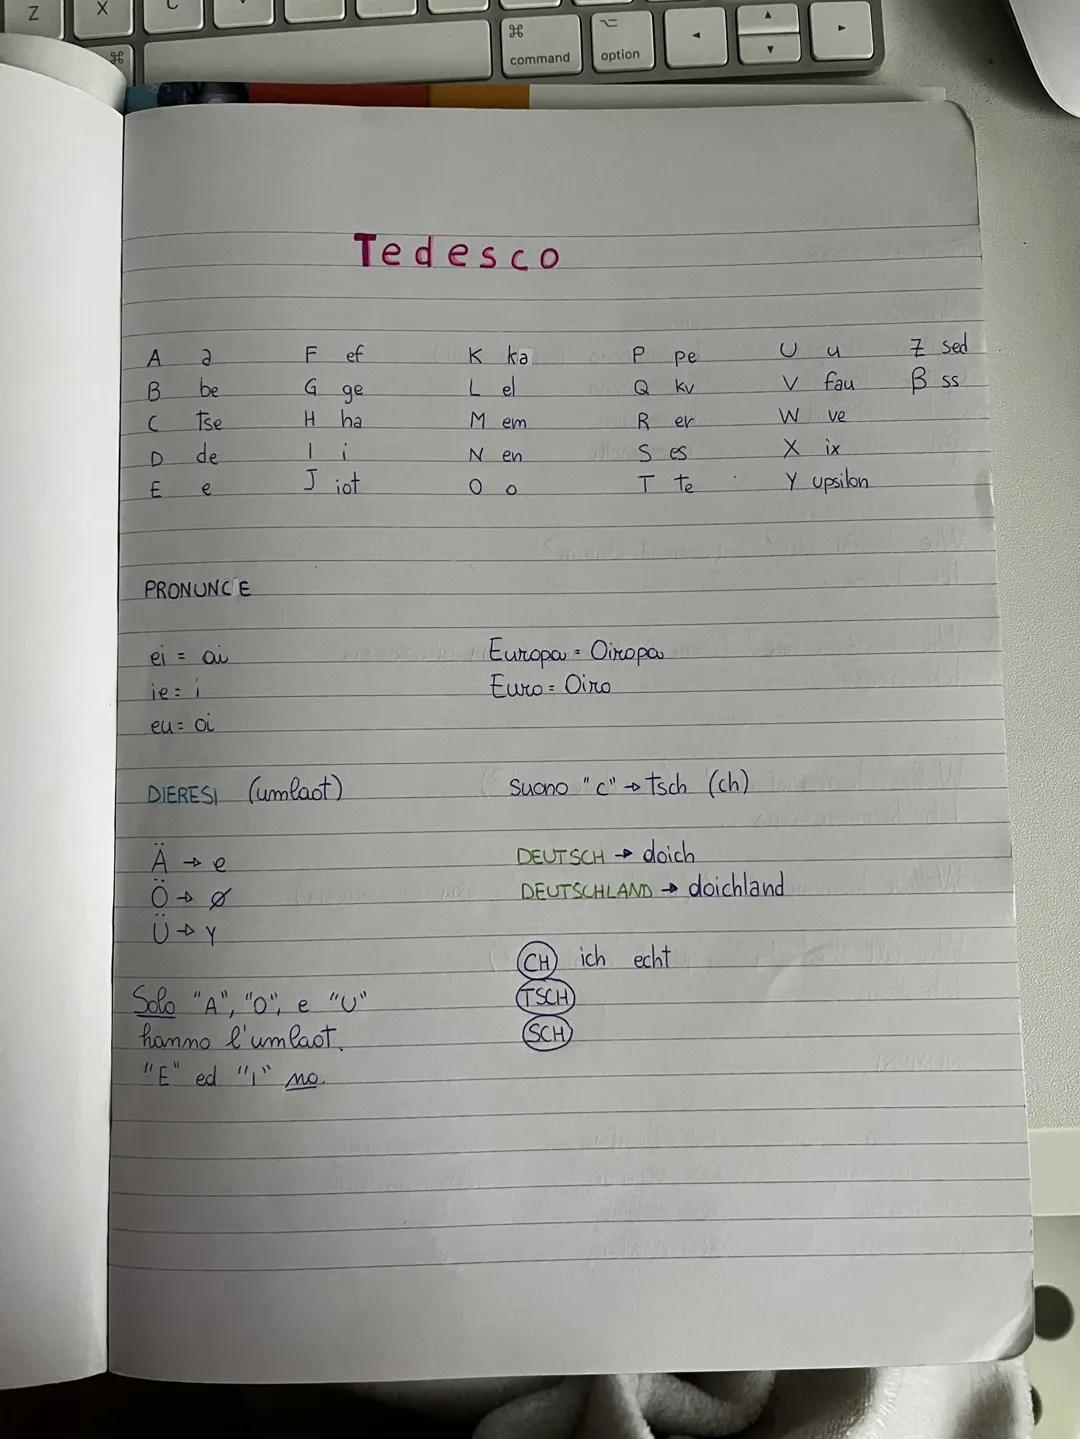 Z X C
⌘ ⌘ command ⌥ option ◂ ▴ ▾ ▸
Tedesco
A a F ef K ka P pe U u Z sed
B be G ge L el Q kv V fau β ss
C tse H ha M em R er W ve
D de I i N en S es X ix
E e J iot O o T te Y upsilon
PRONUNCE
ei = ai Europa = Oiropa
ie = i Euro = Oiro
eu = oi
DIERESI (umlaot) Suono "c" → tsch (ch)
Ä → e DEUTSCH → doich
Ö → ø DEUTSCHLAND → doichland
Ü → y
CH ich echt
Solo "A", "O", e "U" TSCH
hanno l'umlaot. SCH
"E" ed "I" no.